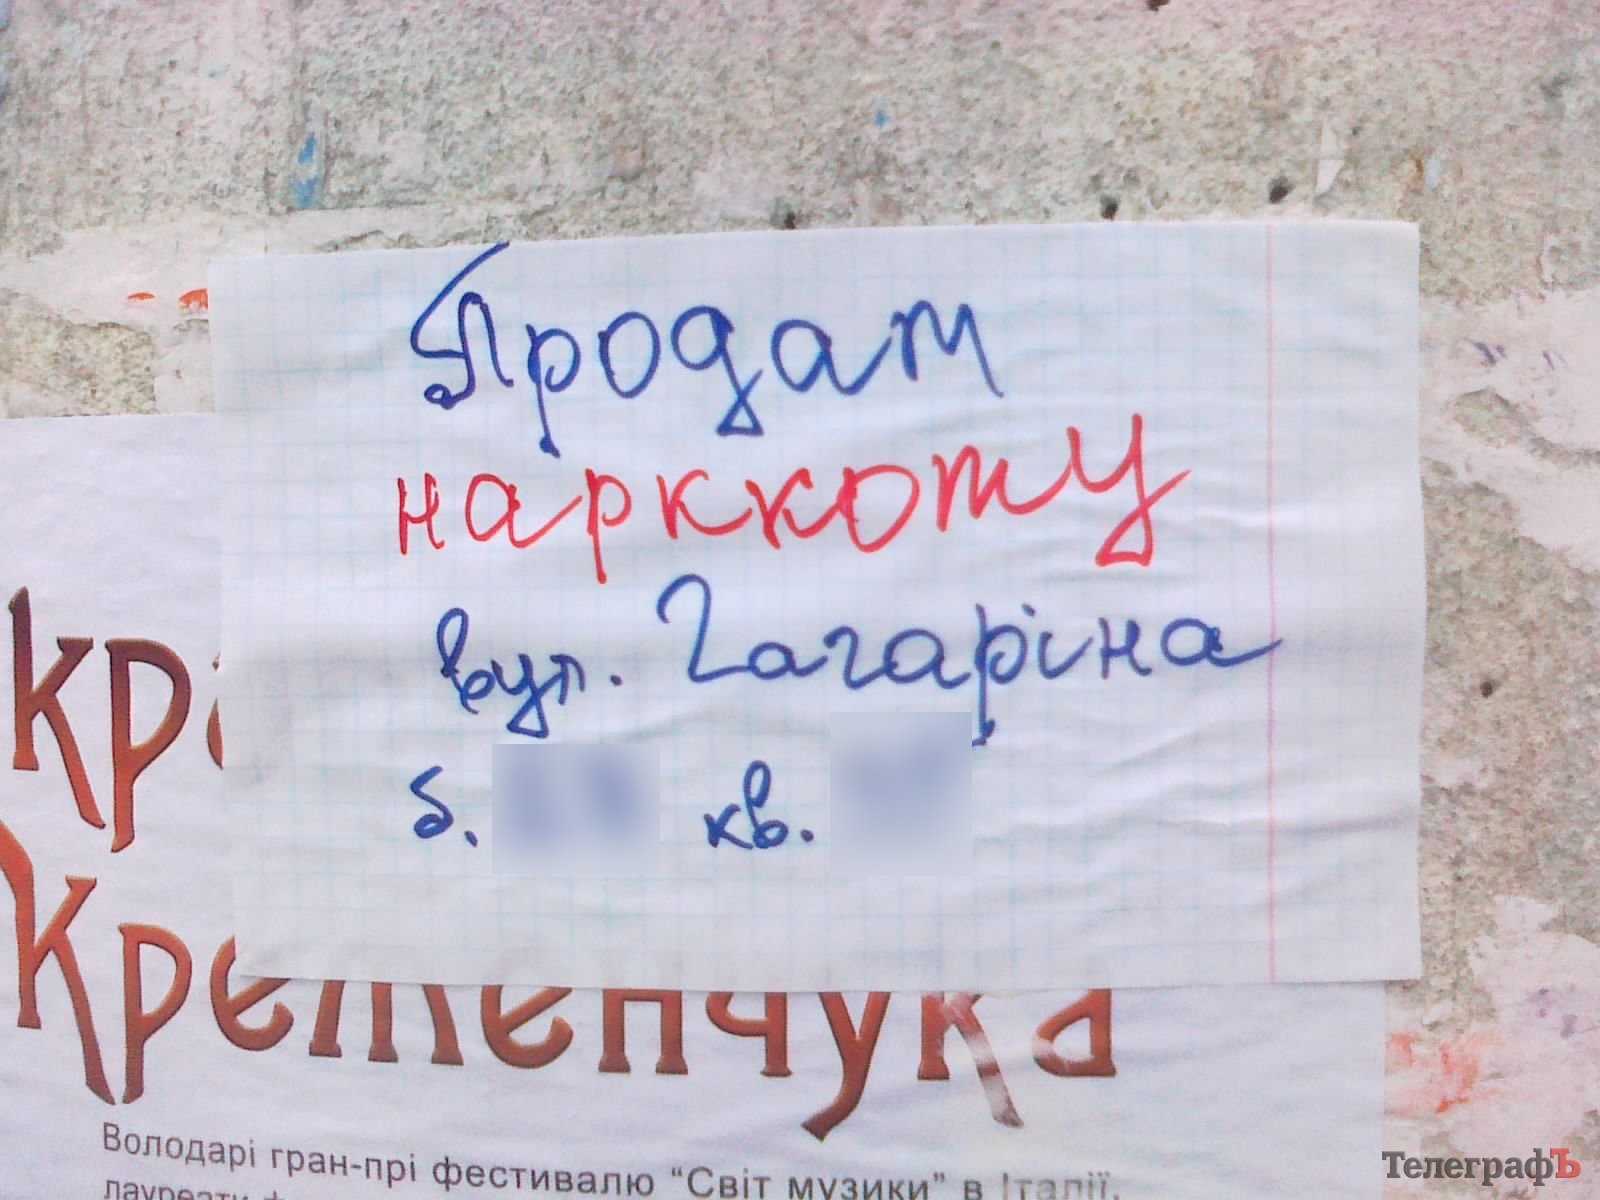 Продам
нарккоту
вул. Гагаріна
б. кв.
кра
Кременчука
Володарі гран-прі фестивалю "Світ музики" в Італії,
ТелеграфЪ